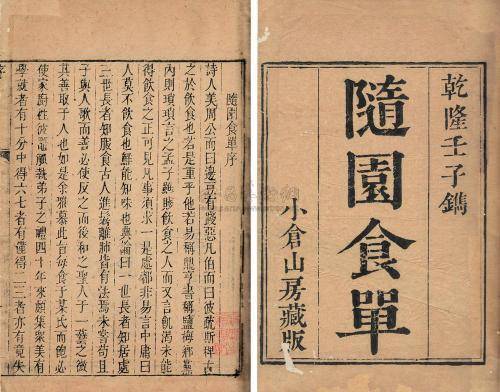 乾隆壬子鐫
隨園食單
小倉山房藏版
隨園食單序
詩人美周公而曰籩豆有踐惡凡伯而曰彼疏斯稗古
之於飲食也若是重乎他若易稱鼎亨書稱鹽梅鄉黨
內則瑣瑣言之孟子雖賤飲食之人而又言飢渴未能
得飲食之正可見凡事須求一是處都非易言中庸曰
人莫不飲食也鮮能知味也典論曰一世長者知居處
三世長者知服食古人進鬐離肺皆有法焉未嘗苟且
子與人歌而善必使反之而後和之聖人于一藝之微
其善取于人也如是余雅慕此旨每食于某氏而飽必
使家廚往彼竈觚執弟子之禮四十年來頗集眾美有
學就者有十分中得六七者有僅得二三者亦有竟失
序